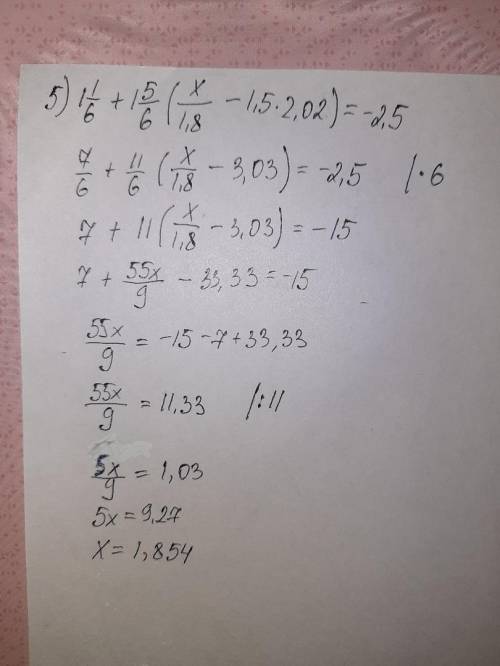 5) 1 1/6 + 1 5/6 (x/1,8 - 1,5·2,02) = -2,5
7/6 + 11/6 (x/1,8 - 3,03) = -2,5 |·6
7 + 11 (x/1,8 - 3,03) = -15
7 + 55x/9 - 33,33 = -15
55x/9 = -15 - 7 + 33,33
55x/9 = 11,33 |:11
5x/9 = 1,03
5x = 9,27
x = 1,854